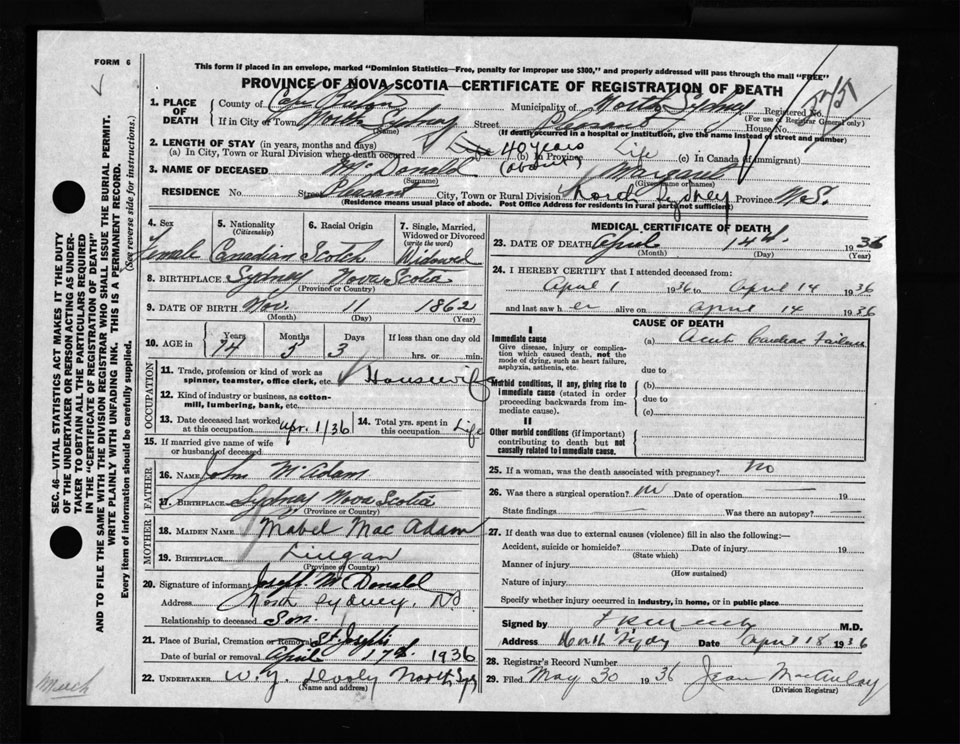 FORM 6
This form if placed in an envelope, marked "Dominion Statistics—Free, penalty for improper use $300," and properly addressed will pass through the mail "FREE"
PROVINCE OF NOVA SCOTIA—CERTIFICATE OF REGISTRATION OF DEATH
1. PLACE OF DEATH
County of Cape Breton Municipality of North Sydney Registered No.
(For use of Registrar General only)
If in City or Town North Sydney Street Pleasant House No.
(Name) (If death occurred in a hospital or institution, give its name instead of street and number)
2. LENGTH OF STAY (in years, months and days)
(a) In City, Town or Rural Division where death occurred Life 40 years (about) (b) In Province Life (c) In Canada (if immigrant)
3. NAME OF DECEASED McDonald Margaret
(Surname) (Given name or names)
RESIDENCE No. Street Pleasant City, Town or Rural Division North Sydney Province N.S.
(Residence means usual place of abode. Post Office Address for residents in rural parts not sufficient)
4. Sex
Female
5. Nationality
(Citizenship)
Canadian
6. Racial Origin
Scotch
7. Single, Married, Widowed or Divorced
(write the word)
Widowed
8. BIRTHPLACE Sydney Nova Scotia
(Province or Country)
9. DATE OF BIRTH Nov. 11 1862
(Month) (Day) (Year)
10. AGE in
Years Months Days If less than one day old
74 5 3 hrs. or min.
OCCUPATION
11. Trade, profession or kind of work as spinner, teamster, office clerk, etc. Housewife
12. Kind of industry or business, as cotton-mill, lumbering, bank, etc.
13. Date deceased last worked at this occupation Apr. 1/36
14. Total yrs. spent in this occupation Life
15. If married give name of wife or husband of deceased
FATHER
16. NAME John McAdam
17. BIRTHPLACE Sydney Nova Scotia
(Province or Country)
MOTHER
18. MAIDEN NAME Mabel Mac Adam
19. BIRTHPLACE Lingan
(Province or Country)
20. Signature of informant Joseph McDonald
Address North Sydney, NS
Relationship to deceased Son.
21. Place of Burial, Cremation or Removal St. Josephs
Date of burial or removal April 17th. 1936
22. UNDERTAKER W.J. Dooly North Syd
(Name and address)
MEDICAL CERTIFICATE OF DEATH
23. DATE OF DEATH April 14th. 1936
(Month) (Day) (Year)
24. I HEREBY CERTIFY that I attended deceased from:
April 1 1936 to April 14 1936
and last saw h er alive on April 14 1936
CAUSE OF DEATH
I
Immediate cause (a) Acute Cardiac Failure
Give disease, injury or complication which caused death, not the mode of dying, such as heart failure, asphyxia, asthenia, etc.
due to
Morbid conditions, if any, giving rise to immediate cause (stated in order proceeding backwards from immediate cause).
(b)
due to
(c)
II
Other morbid conditions (if important) contributing to death but not causally related to immediate cause.
25. If a woman, was the death associated with pregnancy? No
26. Was there a surgical operation? no Date of operation 19
State findings Was there an autopsy?
27. If death was due to external causes (violence) fill in also the following:—
Accident, suicide or homicide? Date of injury 19
(State which)
Manner of injury
(How sustained)
Nature of injury
Specify whether injury occurred in industry, in home, or in public place
Signed by M.D.
Address North Sydy Date April 18 1936
28. Registrar's Record Number
29. Filed May 30 1936 Jean MacAulay
(Division Registrar)
SEC. 46—VITAL STATISTICS ACT MAKES IT THE DUTY
OF THE UNDERTAKER OR PERSON ACTING AS UNDER-
TAKER TO OBTAIN ALL THE PARTICULARS REQUIRED
IN THE "CERTIFICATE OF REGISTRATION OF DEATH"
AND TO FILE THE SAME WITH THE DIVISION REGISTRAR WHO SHALL ISSUE THE BURIAL PERMIT.
WRITE PLAINLY WITH UNFADING INK. THIS IS A PERMANENT RECORD.
Every item of information should be carefully supplied. (See reverse side for instructions.)